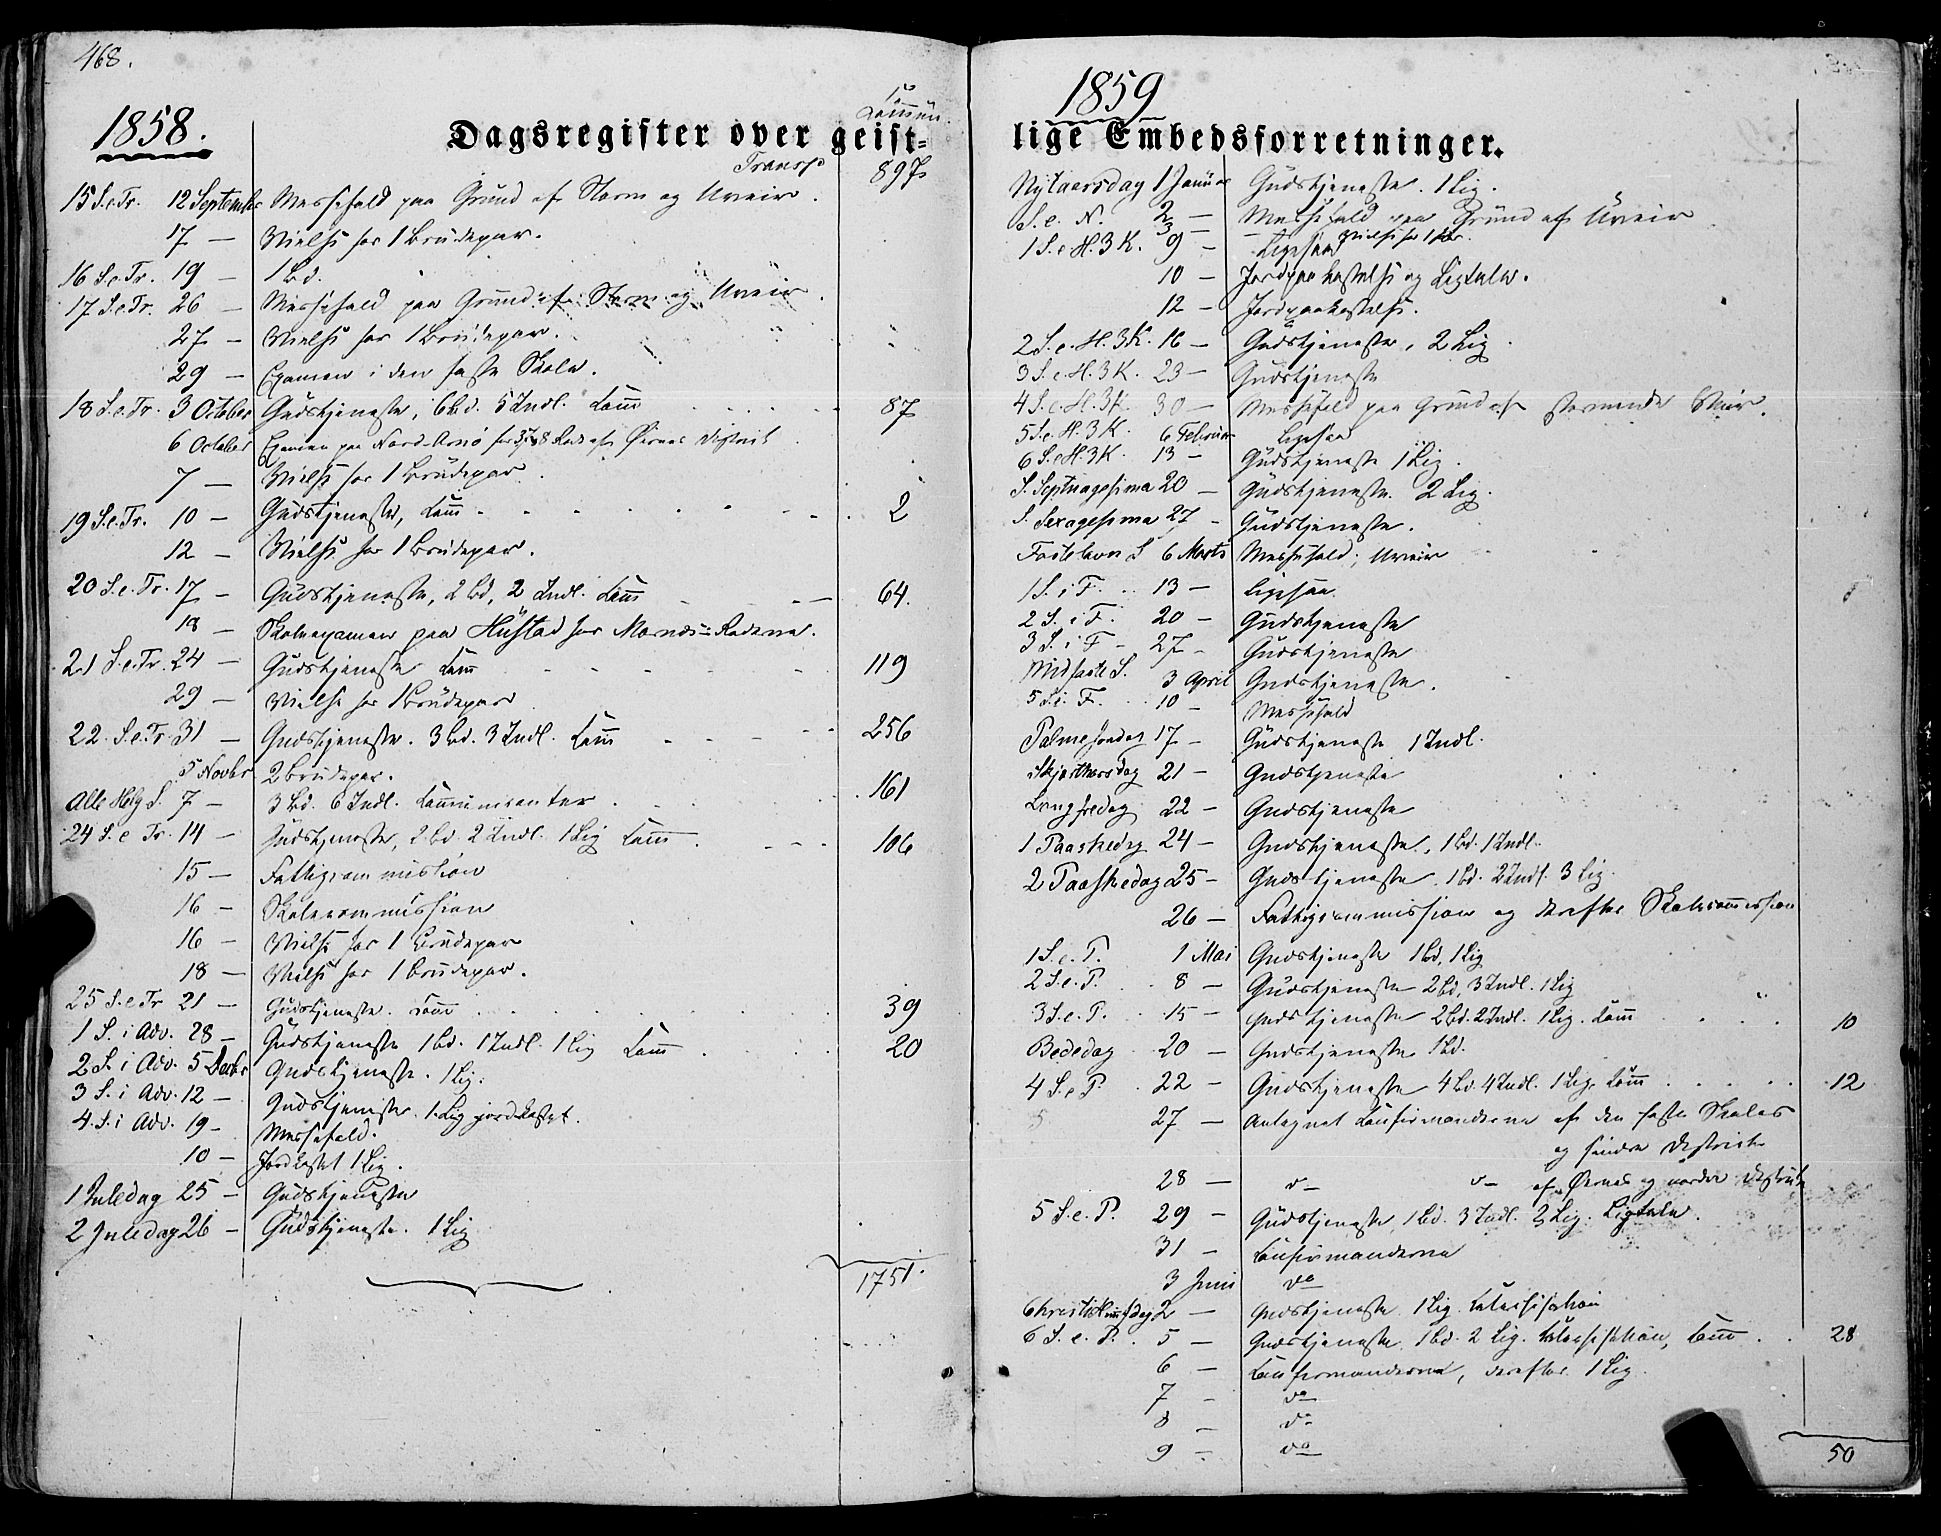 468.
1858.
Dagsregister over geist-
Commun.
Transp 897
15 S. e. Tr. 12 September Messefald paa Grund af Storm og Uveir.
17 — Vielse for 1 Brudepar.
16 S. e. Tr. 19 — 1 Bd.
17 S. e. Tr. 26 — Messefald paa Grund af Storm og Uveir.
27 — Vielse for 1 Brudepar.
29 — Examen i den faste Skole.
18 S. e. Tr. 3 October Gudstjeneste, 6 Bd. 5 Indl. Com̅ 87
6 October Examen paa Nord-Arnø for Rode af Ørnes District
7 — Vielse for 1 Brudepar
19 S. e. Tr. 10 — Gudstjeneste, Com̅ 2
12 — Vielse for 1 Brudepar.
20 S. e. Tr. 17 — Gudstjeneste, 2 Bd, 2 Indl. Com̅ 64.
18 — Skoleexamen paa Hustad for Mornæs-Roderne.
21 S. e. Tr. 24 — Gudstjeneste Com̅ 119
29 — Vielse for 1 Brudepar
22 S. e. Tr. 31 — Gudstjeneste. 3 Bd. 3 Indl. Com̅ 256
5 Novbr 2 Brudepar.
Alle Helg S. 7 — 3 Bd. 6 Indl. Communicanter 161
24 S. e Tr. 14 — Gudstjeneste, 2 Bd. 2 Indl. 1 Lig Com̅ 106
15 — Fattigcommission
16 — Skolecommission
16 — Vielse for 1 Brudepar
18 — Vielse for 1 Brudepar.
25 S. e Tr 21 — Gudstjeneste. Com̅ 39
1 S. i Adv. 28 — Gudstjeneste 1 Bd. 1 Indl. 1 Lig Com̅ 20
2 S. i Adv. 5 Decbr Gudstjeneste. 1 Lig.
3 S. i Adv. 12 — Gudstjeneste. 1 Lig jordkastet.
4 S. i Adv. 19 — Messefald.
10 — Jordkastet 1 Lig.
1 Juledag 25 — Gudstjeneste
2 Juledag 26 — Gudstjeneste. 1 Lig
1751.
1859
lige Embedsforretninger.
Nytaarsdag 1 Januar Gudstjeneste. 1 Lig.
S. e. N. 2 — Messefald paa Grund af Uveir
3 — Vielse for 1 Par.
1 S. e H. 3 K. 9 — Ligesaa
10 — Jordpaakastelse og Ligtale.
12 — Jordpaakastelse.
2 S. e. H. 3 K. 16 — Gudstjeneste, 2 Lig.
3 S. e H. 3 K. 23 — Gudstjeneste
4 S. e H. 3 K. 30 — Messefald paa Grund af stormende Veir.
5 S. e H. 3 K. 6 Februar Ligesaa
6 S. e H. 3 K. 13 — Gudstjeneste 1 Lig.
S. Septuagesima 20 — Gudstjeneste. 2 Lig.
S. Sexagesima 27 — Gudstjeneste.
Fastelavn S 6 Marts Messefald, Uveir
1 S. i F. 13 — Ligesaa.
2 S. i F. 20 — Gudstjeneste
3 S. i F — 27 — Gudstjeneste
Midfaste S. 3 April Gudstjeneste.
5 S. i F. 10 — Messefald
Palmesøndag 17 — Gudstjeneste 1 Indl.
Skjærthorsdag 21 — Gudstjeneste
Langfredag 22 — Gudstjeneste
1 Paaskedag 24 — Gudstjeneste, 1 Bd. 1 Indl.
2 Paaskedag 25 — Gudstjeneste. 1 Bd. 2 Indl. 3 Lig.
26 — Fattigcommission og derefter Skolecom̅ission
1 S. e. P. 1 Mai Gudstjeneste 1 Bd, 1 Lig
2 S. e. P. 8 — Gudstjeneste 2 Bd, 3 Indl. 1 Lig
3 S. e. P. 15 — Gudstjeneste 2 Bd. 2 Indl. 1 Lig. Com̅ 10
Bededag 20 — Gudstjeneste 1 Bd.
4 S. e P. 22 — Gudstjeneste 4 Bd. 4 Indl. 1 Lig. Com̅ 12
27 — Antegnet Confirmanderne af den faste Skoles
og søndre District
28 — do do af Ørnes og nordre District
5 S. e. P. 29 — Gudstjeneste, 1 Bd. 3 Indl. 3 Lig. Ligtale.
31 — Confirmanderne
3 Juni do
Christi Himfdag 2 — Gudstjeneste. 1 Lig. Catechisation
6 S. e. P. 5 — Gudstjeneste, 1 Bd. 2 Lig. Catechisation, Com̅ 28
6 — Confirmanderne, derefter 1 Lig
7 — do
8 — do
9 — do
50